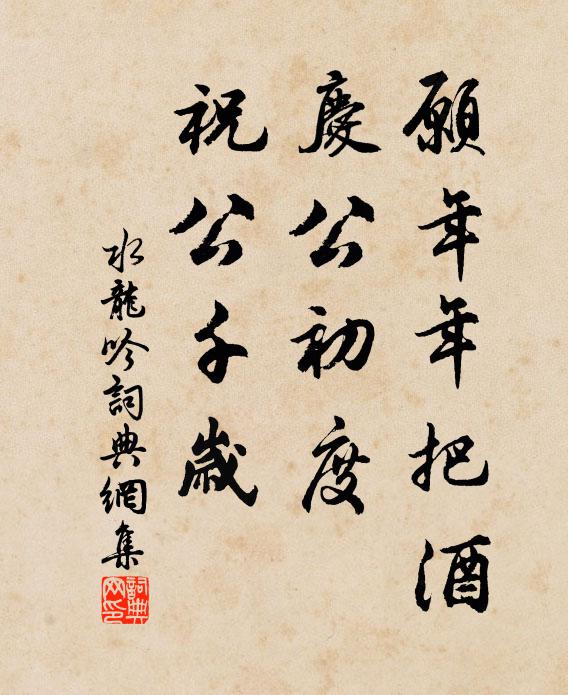 願年年把酒
慶公初度
祝公千歲
水龍吟詞典網集
詞典网印